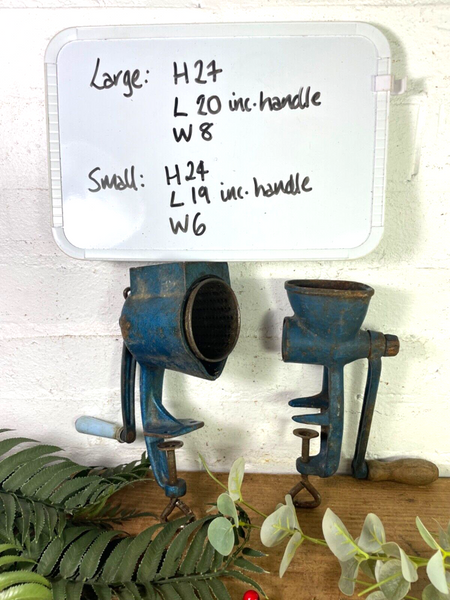 Large: H 27
L 20 inc. handle
W 8
Small: H 24
L 19 inc. handle
W 6